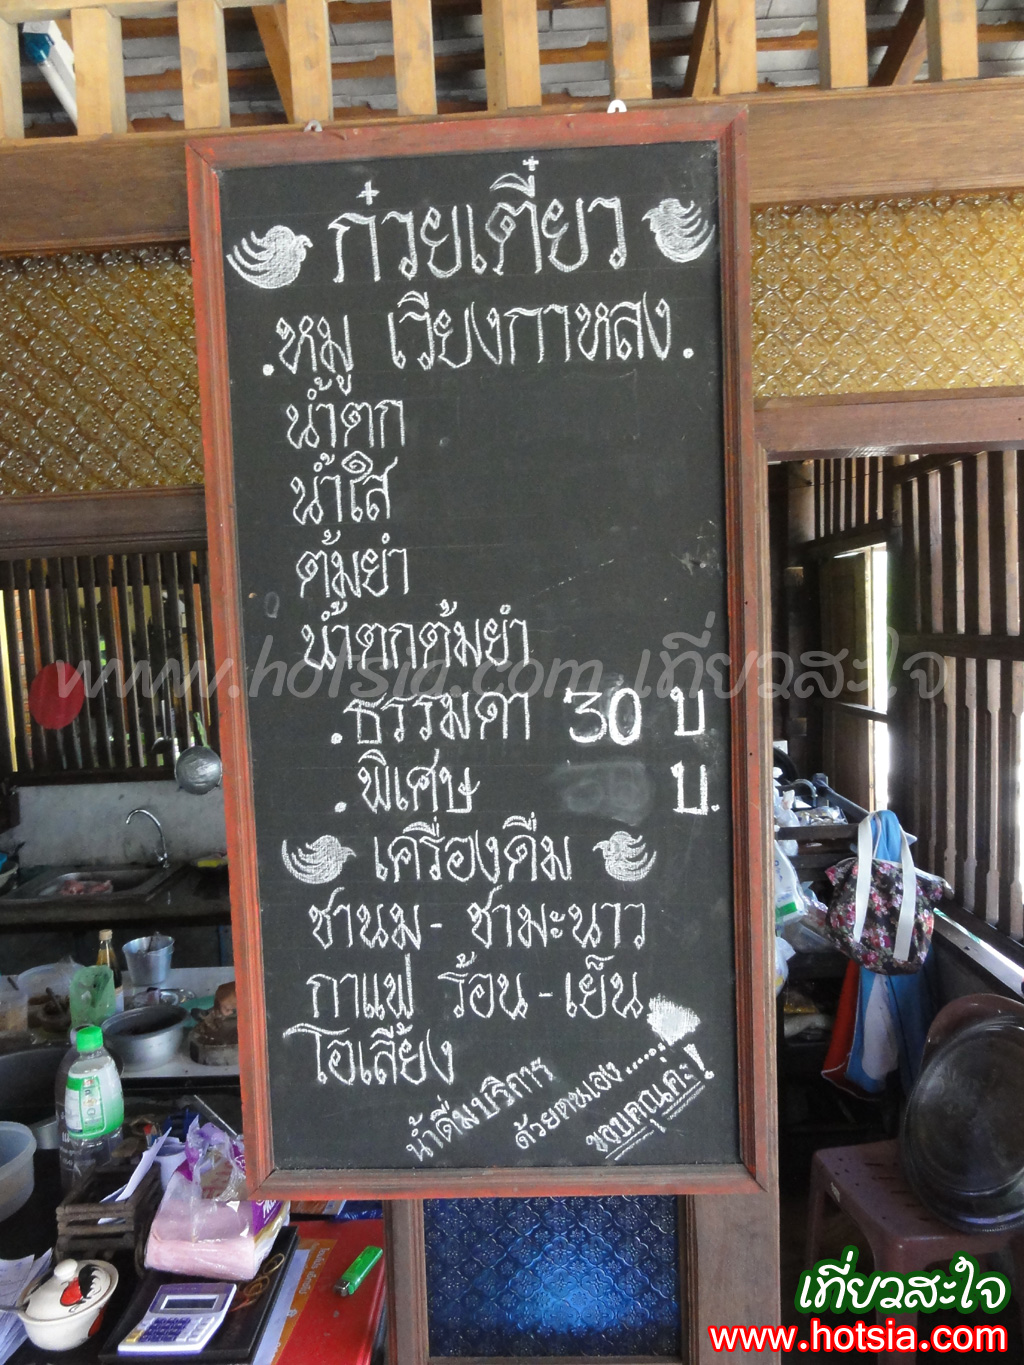 ก๋วยเตี๋ยว
.หมู เวียงกาหลง.
น้ำตก
น้ำใส
ต้มยำ
น้ำตกต้มยำ
www.hotsia.com เที่ยวสะใจ
.ธรรมดา 30 บ
.พิเศษ บ.
เครื่องดื่ม
ชานม - ชามะนาว
กาแฟ ร้อน - เย็น
โอเลี้ยง
น้ำดื่มบริการ
ด้วยตนเอง.....
ขอบคุณค่ะ!
เที่ยวสะใจ
www.hotsia.com